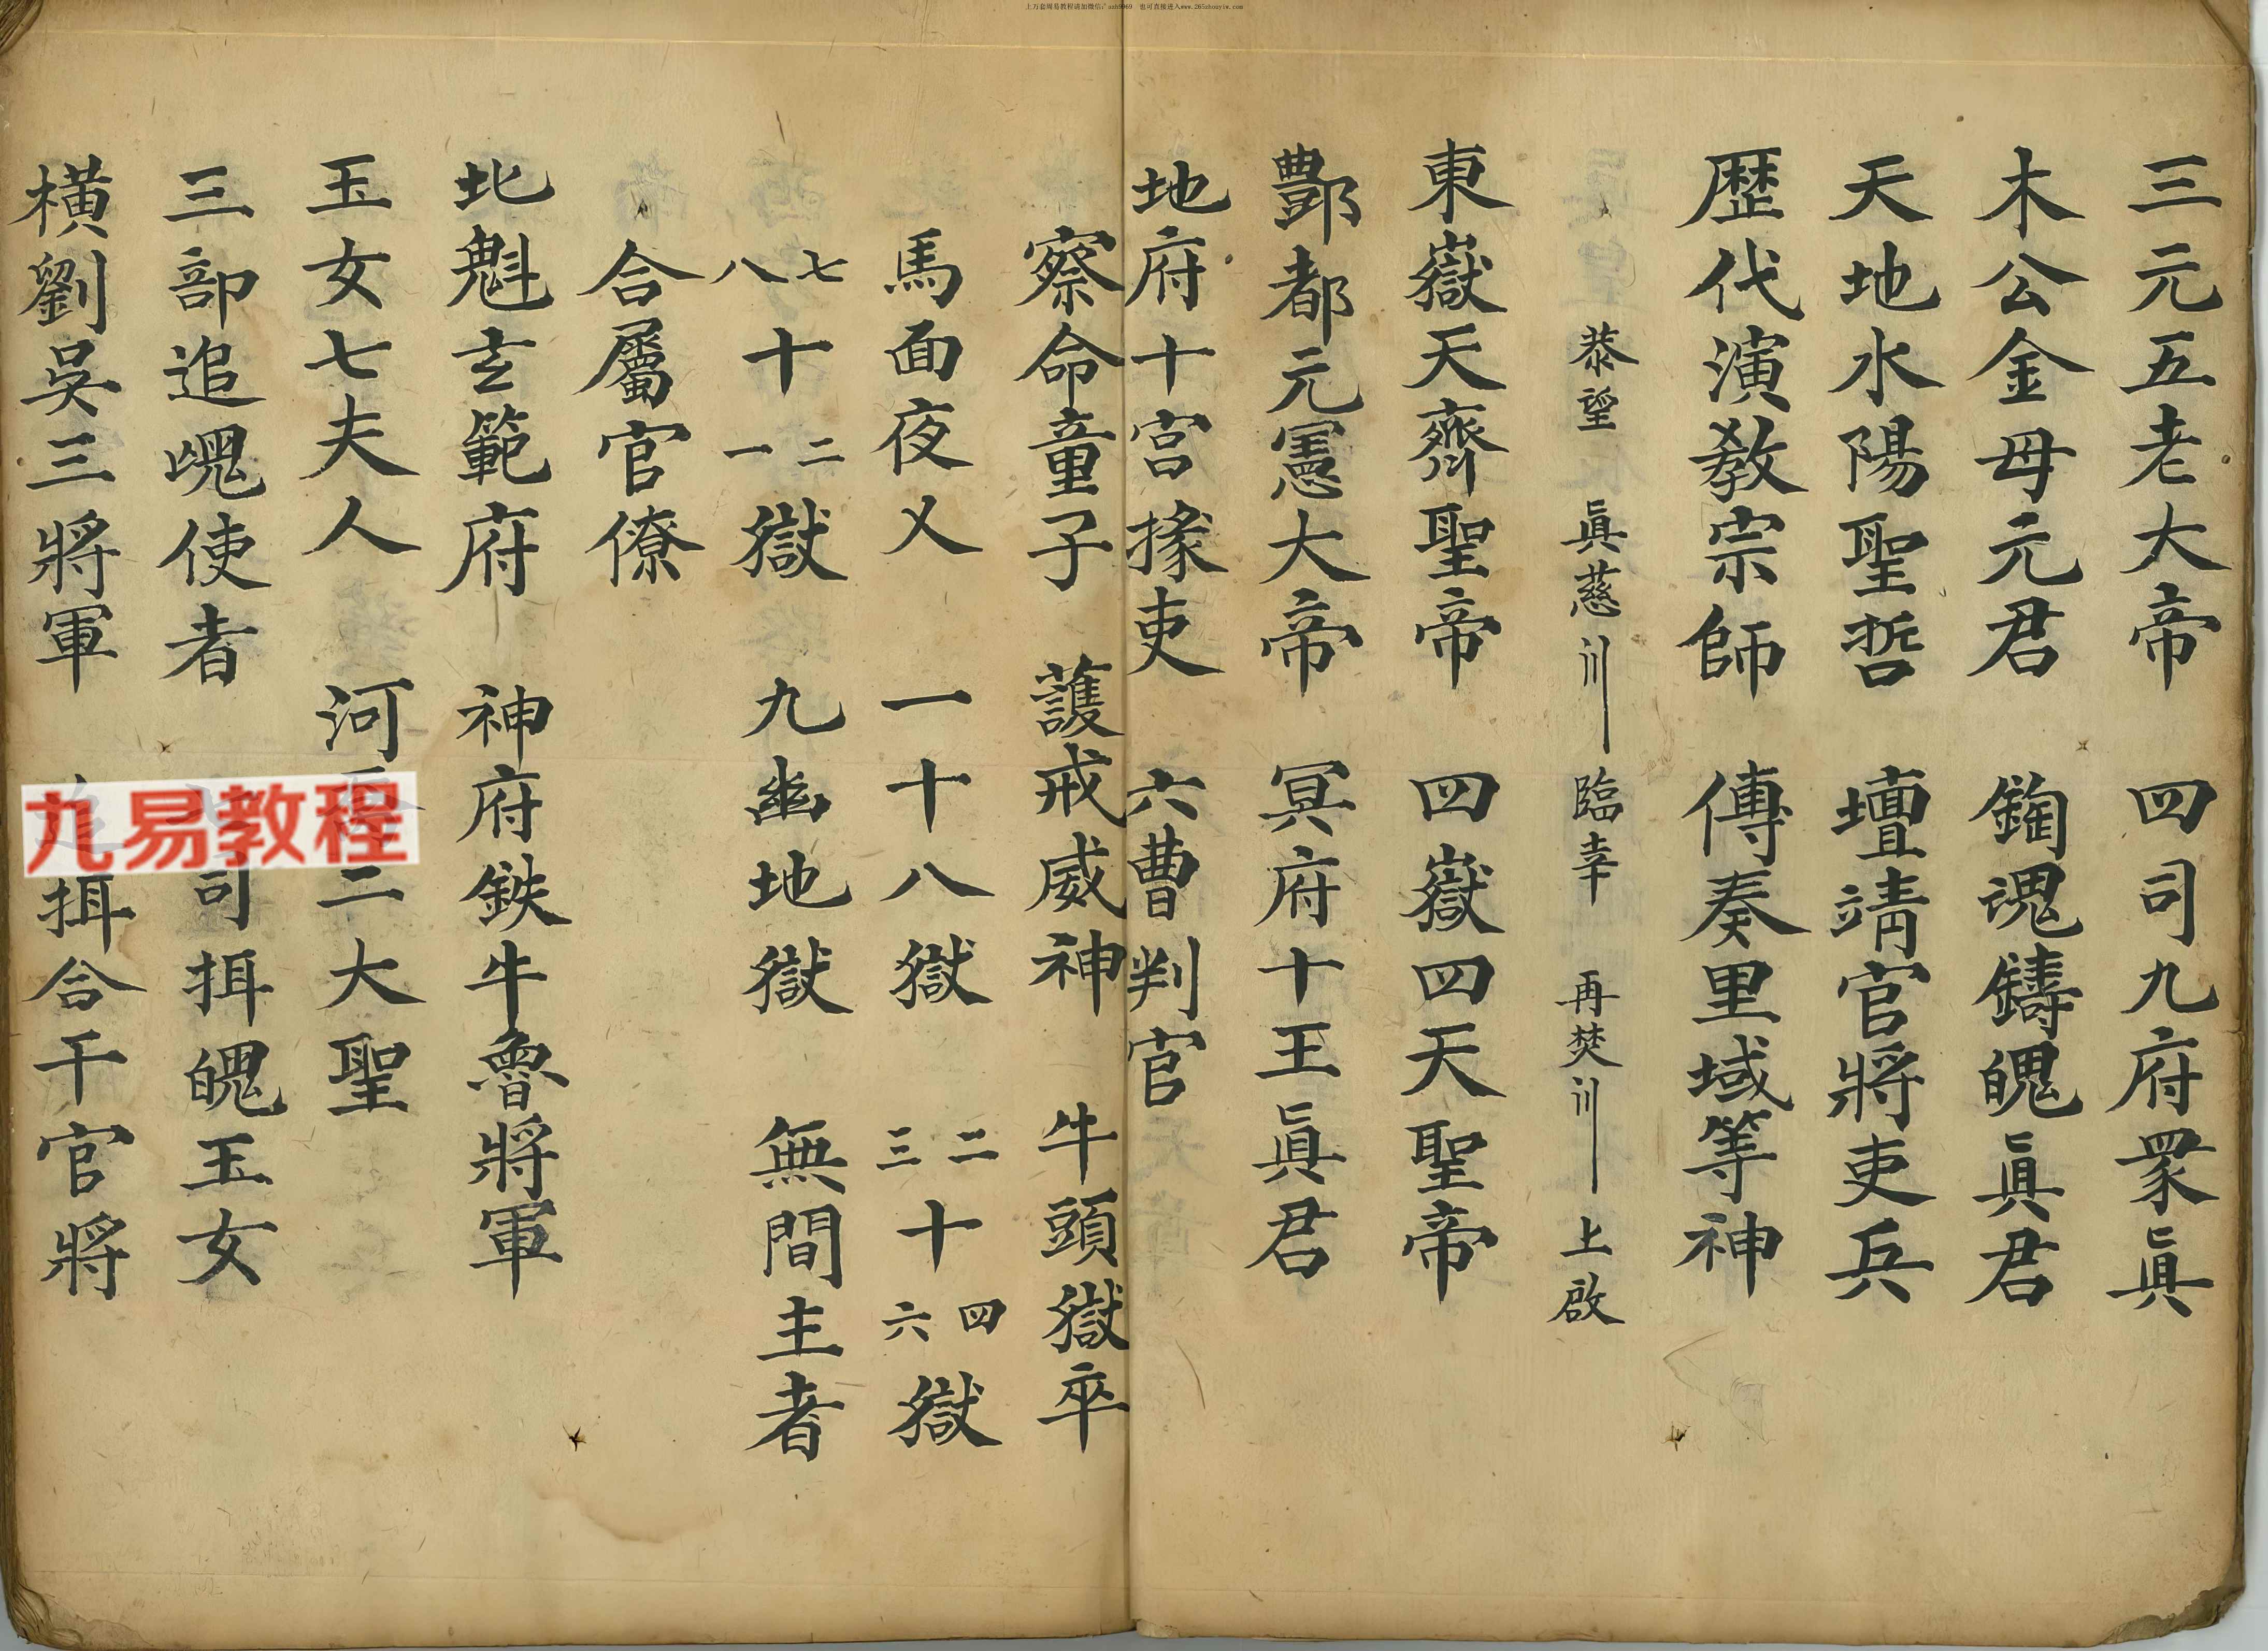 上万套周易教程请加微信
也可直接进入www.265zhouyiw.com
三元五老大帝　四司九府眾眞
木公金母元君　魂鑄魄眞君
天地水陽聖哲　壇靖官將吏兵
歷代演教宗師　傳奏里域等神
恭望　眞慈　臨幸　再焚　上啟
東嶽天齊聖帝　四嶽四天聖帝
酆都元憲大帝　冥府十王眞君
地府十宮掾吏　六曹判官
察命童子　護戒威神　牛頭獄卒
馬面夜乂　一十八獄　二三十四六獄
七八十二一獄　九幽地獄　無間主者
合屬官僚
北魁玄範府　神府鉄牛魯將軍
玉女七夫人　河二大聖
三部追魂使者　司揖魄玉女
橫劉吳三將軍　揖合干官將
九易教程